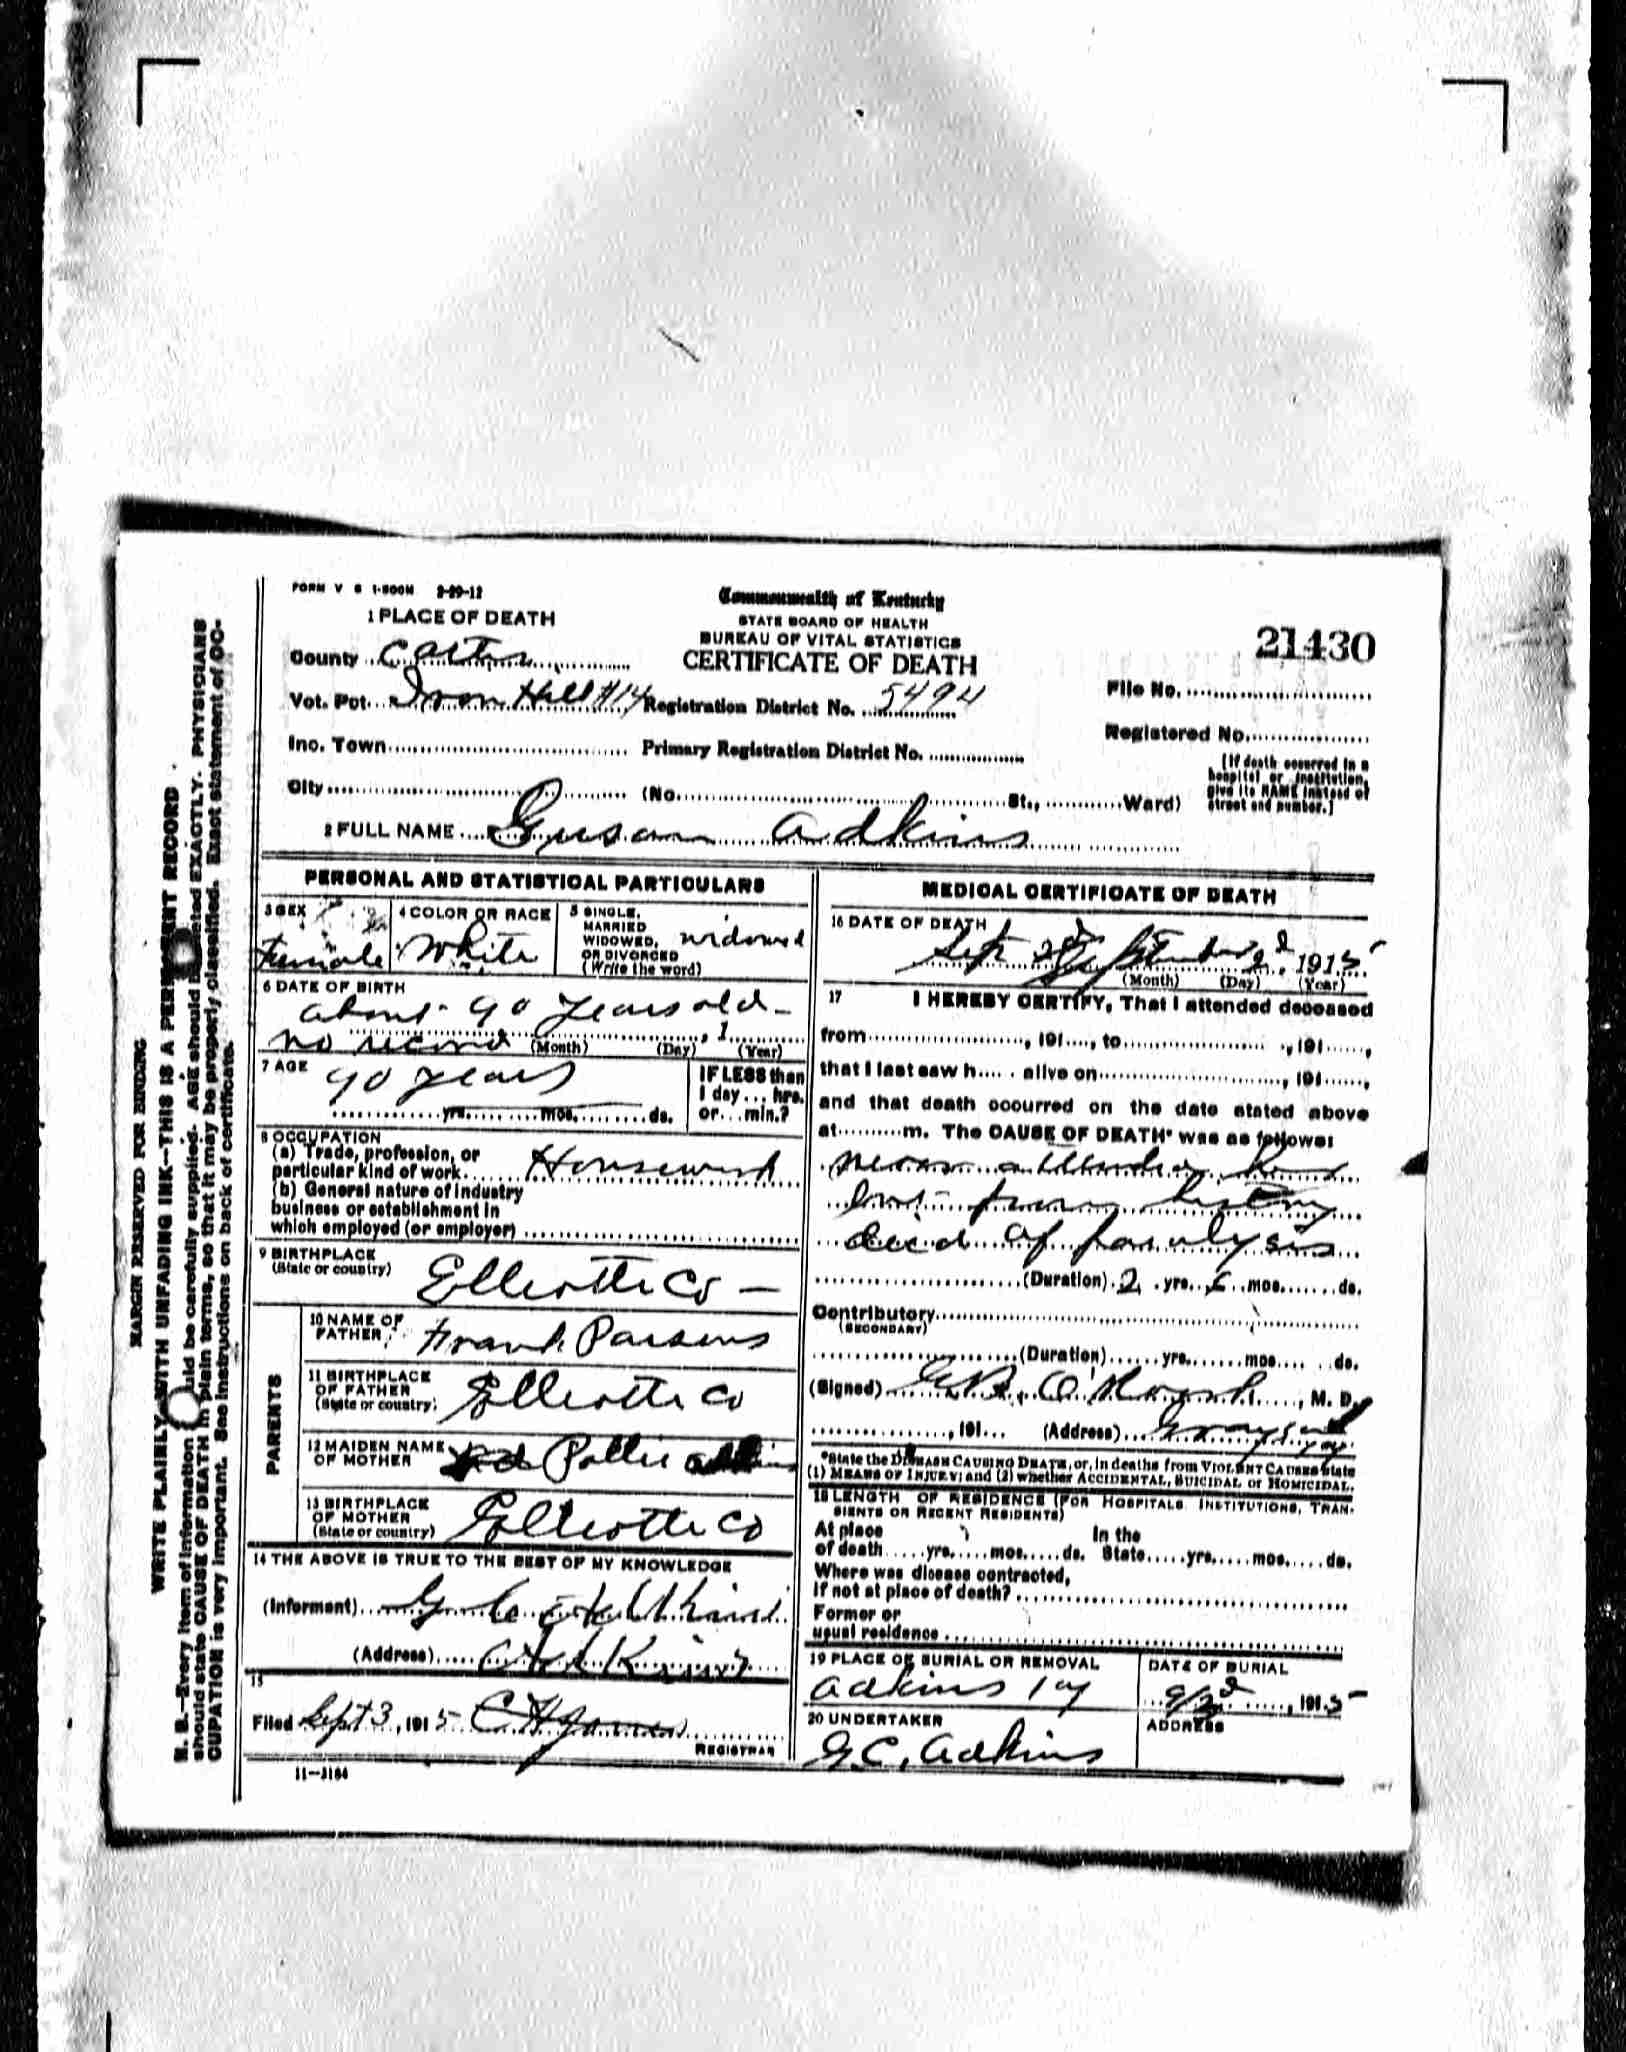 FORM V S 1-500M 2-29-12
Commonwealth of Kentucky
STATE BOARD OF HEALTH
BUREAU OF VITAL STATISTICS
CERTIFICATE OF DEATH
21430
1 PLACE OF DEATH
County Carter
Vot. Pct. Iron Hill #14 Registration District No. 5494
File No.
Registered No.
Inc. Town Primary Registration District No.
City (No. St., Ward)
[If death occurred in a
hospital or institution,
give its NAME instead of
street and number.]
2 FULL NAME Susan Adkins
PERSONAL AND STATISTICAL PARTICULARS
3 SEX
Female
4 COLOR OR RACE
White
5 SINGLE,
MARRIED
WIDOWED,
OR DIVORCED
(Write the word)
widowed
6 DATE OF BIRTH
about 90 years old
no record , 1
(Month) (Day) (Year)
7 AGE
90 years
yrs. mos. ds.
IF LESS than
1 day ... hrs.
or ... min.?
8 OCCUPATION
(a) Trade, profession, or
particular kind of work Housework
(b) General nature of industry
business or establishment in
which employed (or employer)
9 BIRTHPLACE
(State or country)
Elliotte Co
PARENTS
10 NAME OF
FATHER
Frank Parsons
11 BIRTHPLACE
OF FATHER
(State or country)
Elliotte Co
12 MAIDEN NAME
OF MOTHER
Pollie Adkins
13 BIRTHPLACE
OF MOTHER
(State or country)
Elliotte Co
14 THE ABOVE IS TRUE TO THE BEST OF MY KNOWLEDGE
(Informant) G C Adkins
(Address) Adkins
15
Filed Sept 3, 1915 C H James
REGISTRAR
11-3184
MEDICAL CERTIFICATE OF DEATH
16 DATE OF DEATH
Sept 2d September 2d, 1915
(Month) (Day) (Year)
17 I HEREBY CERTIFY, That I attended deceased
from , 191 , to , 191 ,
that I last saw h alive on , 191 ,
and that death occurred on the date stated above
at m. The CAUSE OF DEATH* was as follows:
never attended her
but from history
died of paralysis
(Duration) 2 yrs. mos. ds.
Contributory
(SECONDARY)
(Duration) yrs. mos. ds.
(Signed) G. B. O'Roark, M. D.
, 191 (Address) Grayson Ky
*State the DISEASE CAUSING DEATH, or, in deaths from VIOLENT CAUSES state
(1) MEANS OF INJURY; and (2) whether ACCIDENTAL, SUICIDAL or HOMICIDAL.
18 LENGTH OF RESIDENCE (FOR HOSPITALS, INSTITUTIONS, TRAN-
SIENTS OR RECENT RESIDENTS)
At place In the
of death yrs. mos. ds. State yrs. mos. ds.
Where was disease contracted,
if not at place of death?
Former or
usual residence
19 PLACE OF BURIAL OR REMOVAL
Adkins Ky
DATE OF BURIAL
9/3d, 1915
20 UNDERTAKER
G C, Adkins
ADDRESS
MARGIN RESERVED FOR BINDING
WRITE PLAINLY WITH UNFADING INK—THIS IS A PERMANENT RECORD
N. B.—Every item of information should be carefully supplied. AGE should be stated EXACTLY. PHYSICIANS
should state CAUSE OF DEATH in plain terms, so that it may be properly classified. Exact statement of OC-
CUPATION is very important. See instructions on back of certificate.